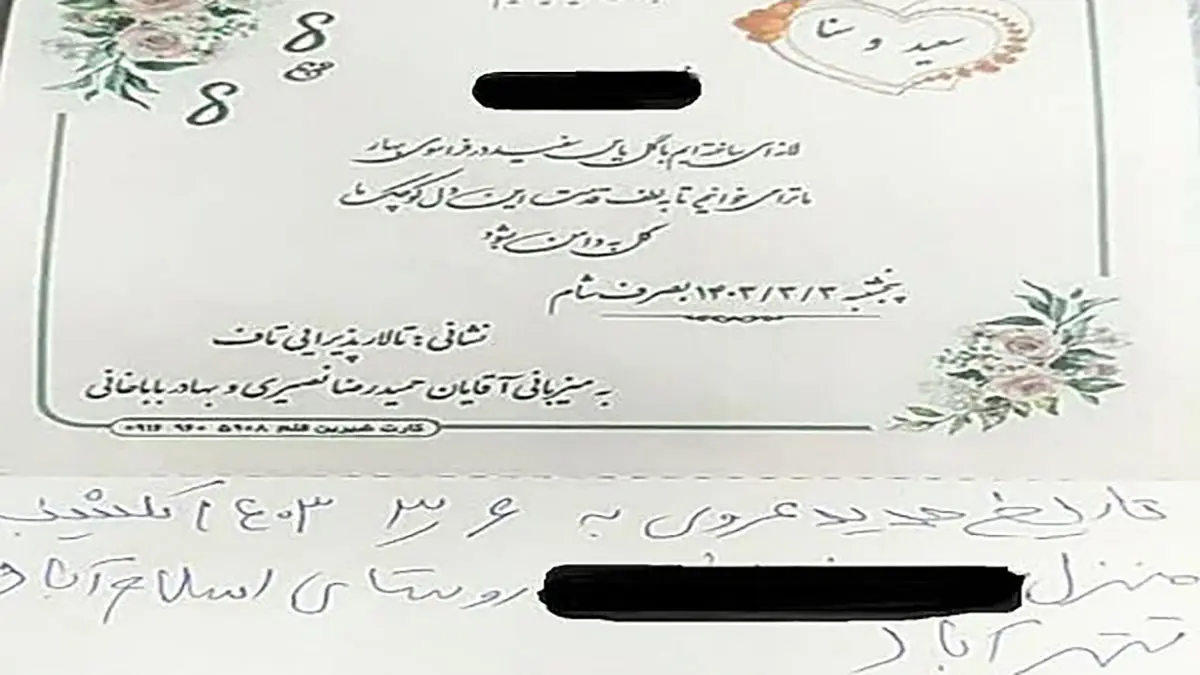 سعید و سنا
لانه ای ساخته ایم با گل یاس سفید در فراسوی بهار
ما ترا می خوانیم تا به لطف قدمت این دل کوچک ما
گل به دامن بشود
پنجشنبه ۱۴۰۳/۳/۳ بصرف شام
نشانی : تالار پذیرایی تاف
به میزبانی آقایان حمیدرضا نصیری و بهادر باباخانی
کارت شیرین قلم ۵۹۰۸ ۹۶۰ ۰۹۱۶
تاریخ جدید عروسی به ۶ ۳ ۱۴۰۳ یکشنبه
منزل روستای اسلام آباد
شهر آباد